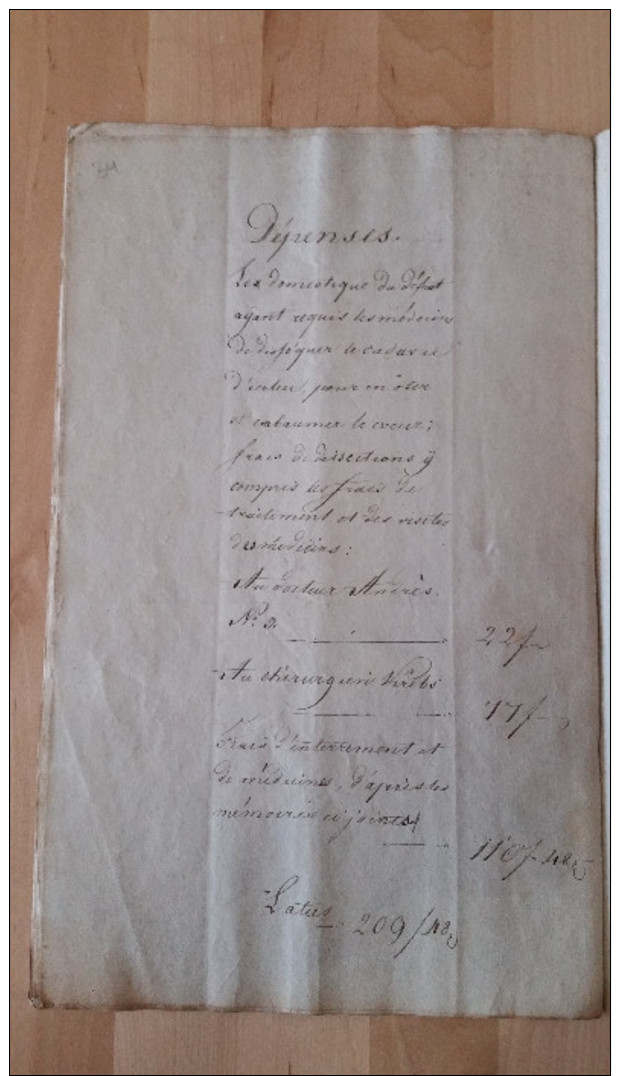 34
Dépenses.
Les domestique du défunt
ayant requis les médecins
de disséquer le cadavre
pour en ôter
et embaumer le coeur;
frais de dissections y
compris les frais de
traitement et des visites
des médecins:
Au docteur Andrès.
No 9. 22f
Au chirurgien Krebs
77f
Frais d'enterrement et
de médecines, d'après les
mémoires ci joints
110f 48
Latus 209f 48